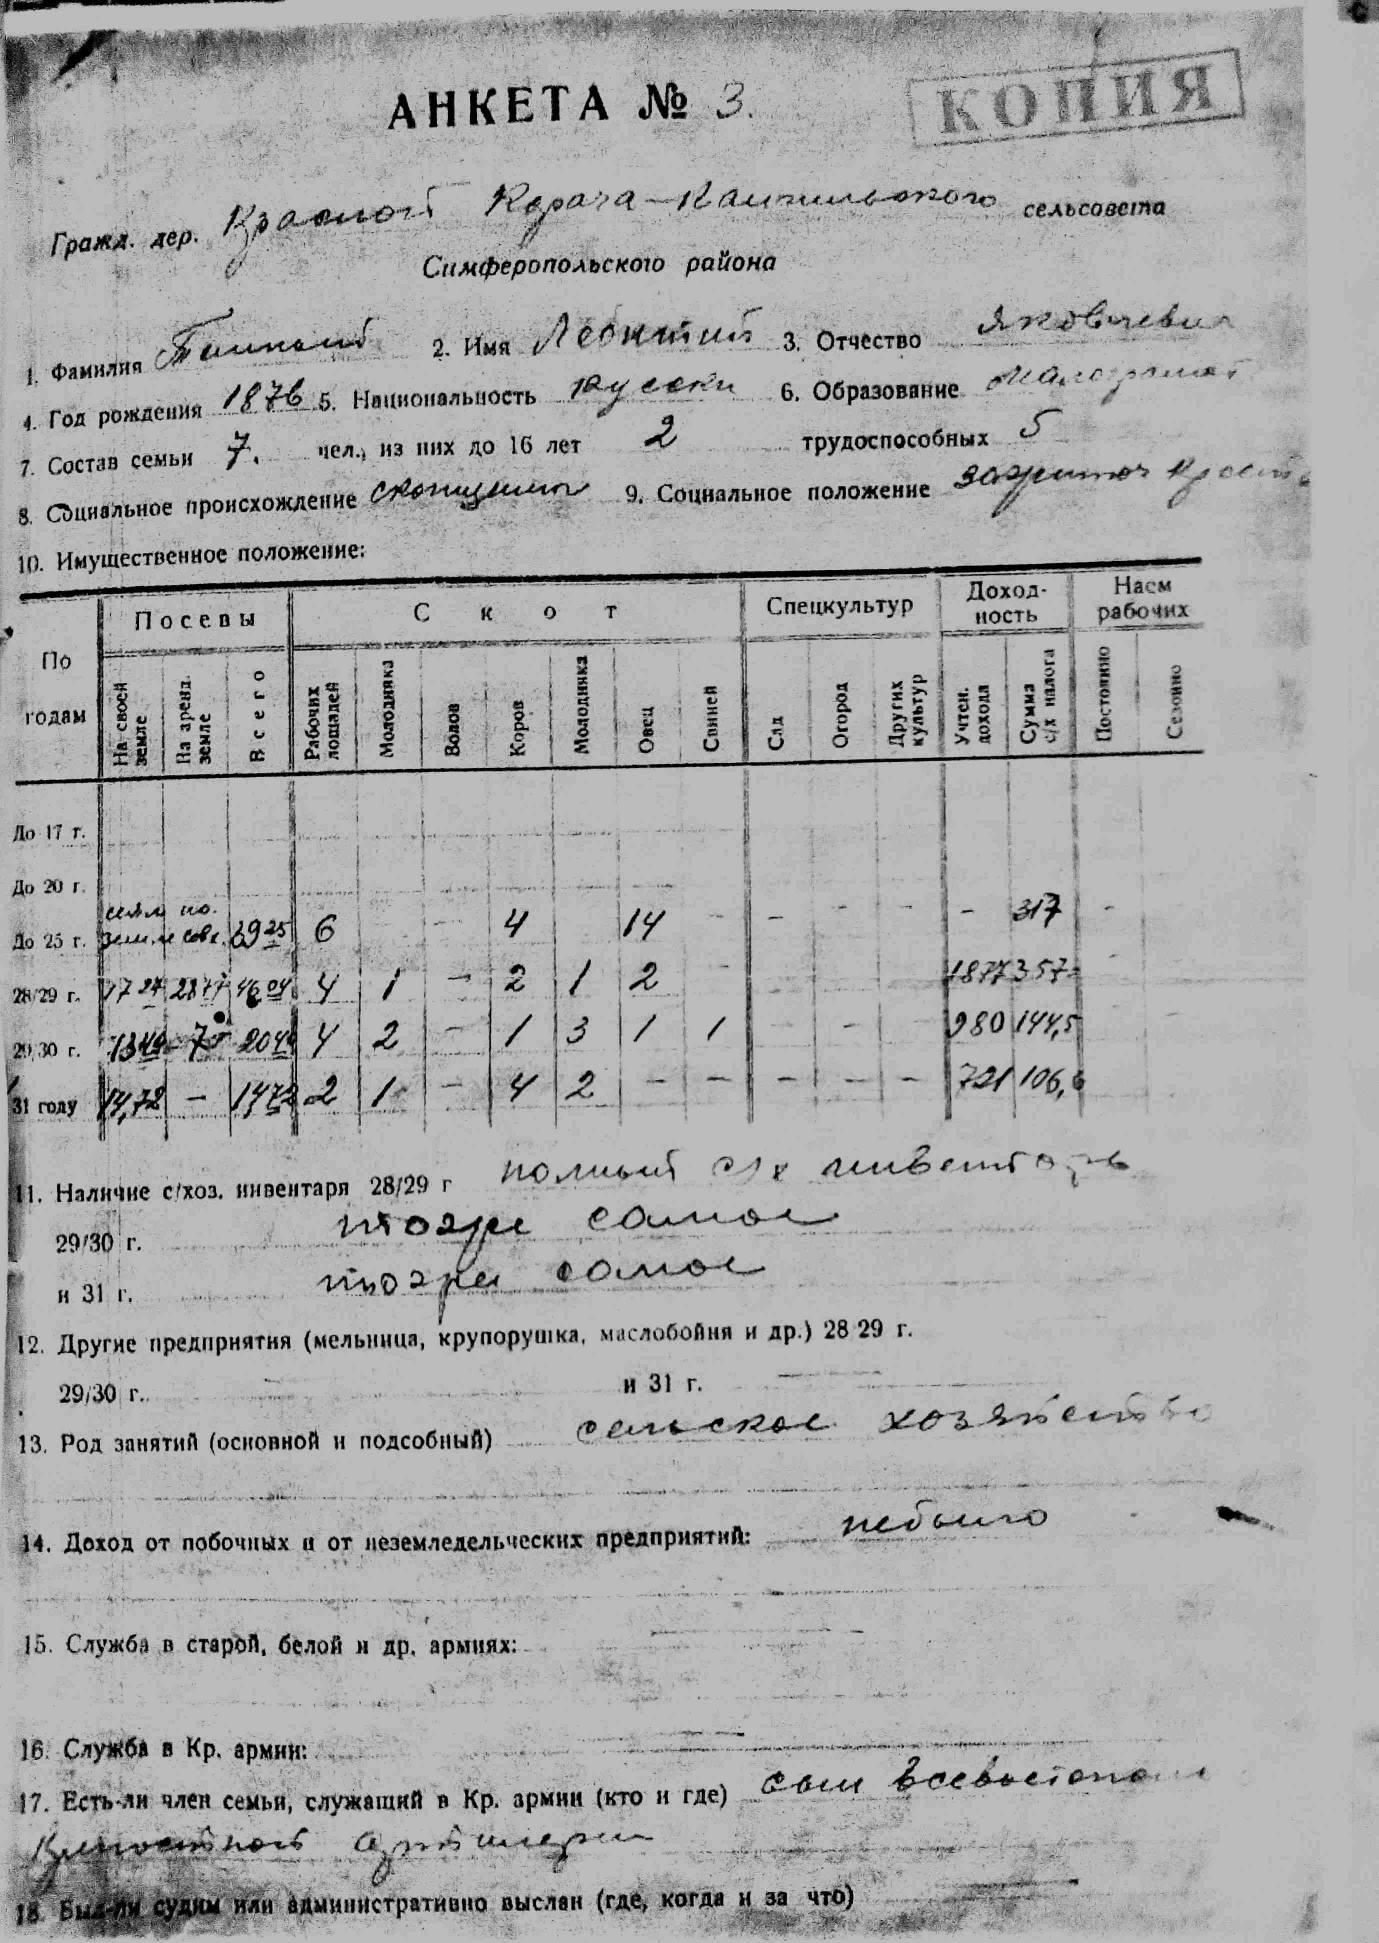 КОПИЯ
АНКЕТА № 3.
Гражд. дер. Красной Карача-Кангильского сельсовета
Симферопольского района
1. Фамилия 2. Имя Леонтий 3. Отчество Яковлевич
4. Год рождения 1876 5. Национальность русски 6. Образование малограмот
7. Состав семьи 7. чел., из них до 16 лет 2 трудоспособных 5
8. Социальное происхождение 9. Социальное положение зажиточ кресть
10. Имущественное положение:
По годам Посевы Скот Спецкультур Доходность Наем рабочих
На своей земле На аренд. земле Всего Рабочих лошадей Молодняка Волов Коров Молодняка Овец Свиней Сад Огород Других культур Учтен. дохода Сумма с/х налога Постоянно Сезонно
До 17 г.
До 20 г.
До 25 г. 6 - 4 14 - - - - - 317 -
28/29 г. 17 27 28 77 46 04 4 1 - 2 1 2 - - - 1877 357= -
29/30 г. 13 49 7 20 49 4 2 - 1 3 1 1 - - 980 144,5 -
31 году 14,72 - 14 72 2 1 - 4 2 - - - - - 721 106,6
11. Наличие с/хоз. инвентаря 28/29 г полный с/х инвентарь
29/30 г. тоже самое
и 31 г. тоже самое
12. Другие предприятия (мельница, крупорушка, маслобойня и др.) 28/29 г.
29/30 г. и 31 г. —
13. Род занятий (основной и подсобный) сельское хозяйство
14. Доход от побочных и от неземледельческих предприятий: небыло
15. Служба в старой, белой и др. армиях: —
16. Служба в Кр. армии: —
17. Есть-ли член семьи, служащий в Кр. армии (кто и где) сын всевастополе
Крепостной артилерии
18. Был-ли судим или административно выслан (где, когда и за что) —